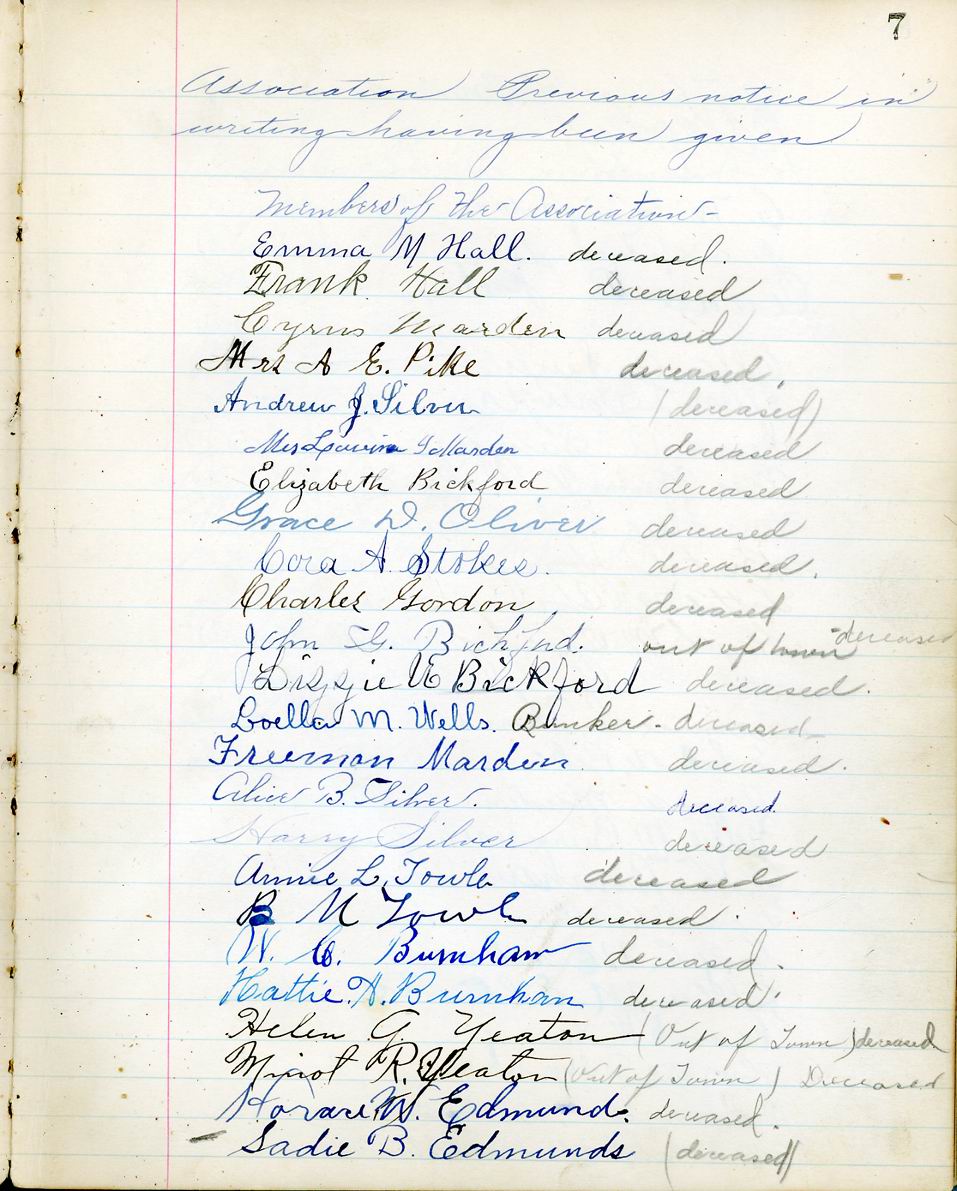 7
Association Previous notice in
writing having been given
Members of the Association -
Emma M Hall. deceased.
Frank Hall deceased
Cyrus Marden deceased
Mrs A E. Pike deceased.
Andrew J. Silver (deceased)
Mrs Marden deceased
Elizabeth Bickford deceased
Grace D. Oliver deceased
Cora A. Stokes. deceased.
Charles Gordon, deceased
John G. Bickford. out of town - deceased
Lizzie E Bickford deceased.
Loella M. Wells. Bunker - deceased -
Freeman Marden deceased.
Alice B. Silver. deceased.
Harry Silver deceased
Annie L. Towle deceased
B M Towle deceased.
W. C. Burnham deceased.
Hattie. A. Burnham deceased.
Helen G. Yeaton (Out of Town) deceased
Minot R. Yeaton (Out of Town) Deceased
Horace W. Edmunds. deceased.
Sadie B. Edmunds (deceased)